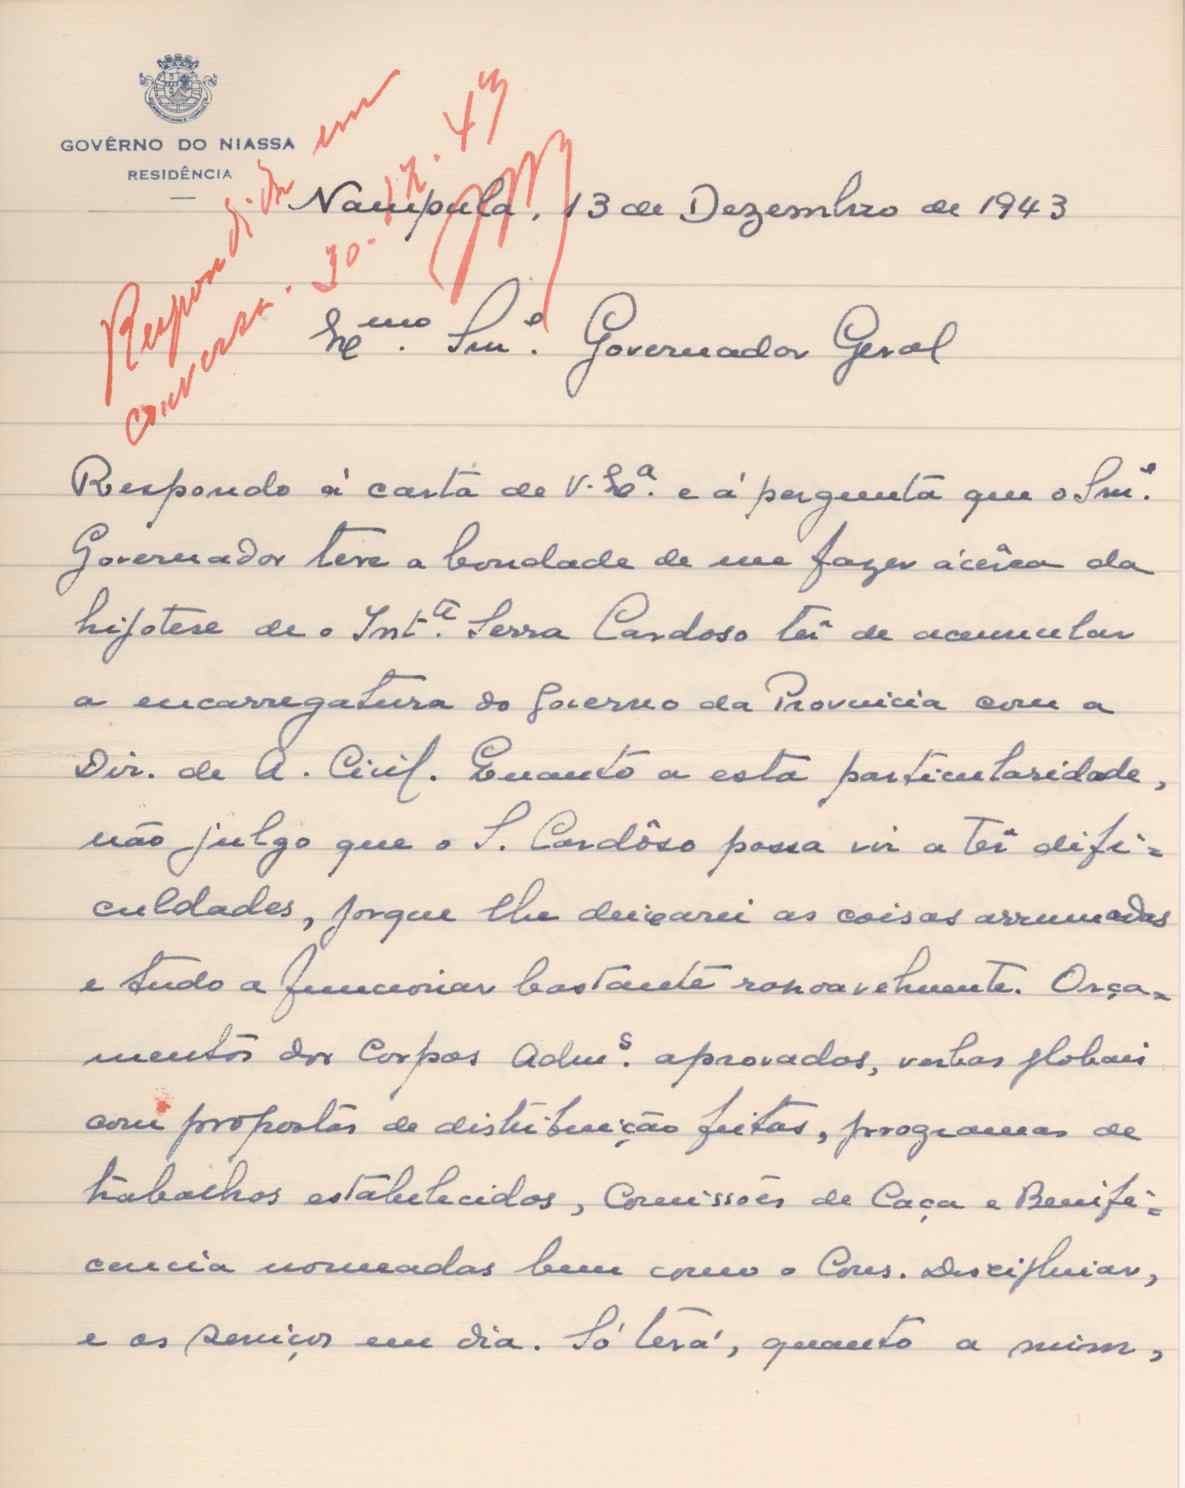 GOVÊRNO DO NIASSA
RESIDÊNCIA
Respondida em
conversa. 30.12.43
Nampula, 13 de Dezembro de 1943
Exmo. Snr. Governador Geral
Respondo á carta de V. Exa. e á pergunta que o Snr.
Governador teve a bondade de me fazer ácêrca da
hipotese de o Intte. Serra Cardoso têr de acumular
a encarregatura do Governo da Provincia com a
Dir. de A. Civil. Quanto a esta particularidade,
não julgo que o S. Cardôso possa vir a têr difi-
culdades, porque lhe deixarei as coisas arrumadas
e tudo a funcionar bastante rasoavelmente. Orça-
mentos dos Corpos Adms. aprovados, verbas globais
com propostas de distribuição feitas, programas de
trabalhos estabelecidos, Comissões de Caça e Benifi-
cencia nomeadas bem como o Cons. Disciplinar,
e os serviços em dia. Só terá, quanto a mim,